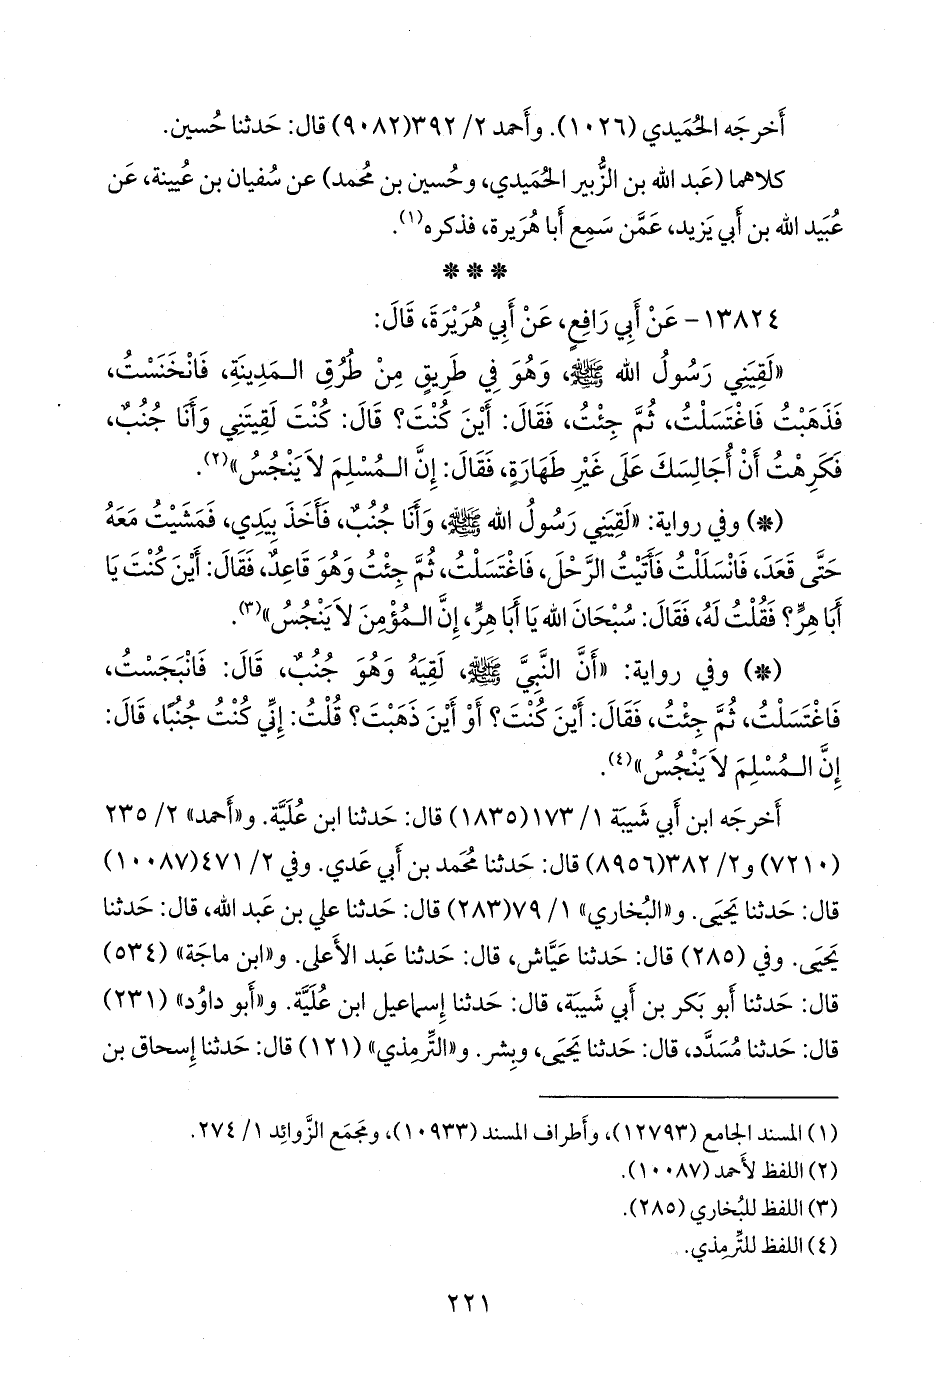 أَخرجَه الحُمَيدي (١٠٢٦). وأَحمد ٢/ ٣٩٢(٩٠٨٢) قال: حَدثنا حُسين.
كلاهما (عَبد الله بن الزُّبير الحُمَيدي، وحُسين بن محُمد) عن سُفيان بن عُيينة، عَن
عُبَيد الله بن أَبي يَزيد، عَمَّن سَمِع أَبا هُرَيرة، فذكره(١).
* * *
١٣٨٢٤- عَنْ أَبِي رَافِعٍ، عَنْ أَبِي هُرَيْرَةَ، قَالَ:
«لَقِيَنِي رَسُولُ الله ﷺ، وَهُوَ فِي طَرِيقٍ مِنْ طُرُقِ الـمَدِينَةِ، فَانْخَنَسْتُ،
فَذَهَبْتُ فَاغْتَسَلْتُ، ثُمَّ جِئْتُ، فَقَالَ: أَيْنَ كُنْتَ؟ قَالَ: كُنْتَ لَقِيتَنِي وَأَنَا جُنُبٌ،
فَكَرِهْتُ أَنْ أُجَالِسَكَ عَلَى غَيْرِ طَهَارَةٍ، فَقَالَ: إِنَّ الـمُسْلِمَ لاَ يَنْجُسُ»(٢).
(*) وفي رواية: «لَقِيَنِي رَسُولُ الله ﷺ، وَأَنَا جُنُبٌ، فَأَخَذَ بِيَدِي، فَمَشَيْتُ مَعَهُ
حَتَّى قَعَدَ، فَانْسَلَلْتُ فَأَتَيْتُ الرَّحْلَ، فَاغْتَسَلْتُ، ثُمَّ جِئْتُ وَهُوَ قَاعِدٌ، فَقَالَ: أَيْنَ كُنْتَ يَا
أَبَا هِرٍّ؟ فَقُلْتُ لَهُ، فَقَالَ: سُبْحَانَ الله يَا أَبَا هِرٍّ، إِنَّ الـمُؤْمِنَ لاَ يَنْجُسُ»(٣).
(*) وفي رواية: «أَنَّ النَّبِيَّ ﷺ، لَقِيَهُ وَهُوَ جُنُبٌ، قَالَ: فَانْبَجَسْتُ،
فَاغْتَسَلْتُ، ثُمَّ جِئْتُ، فَقَالَ: أَيْنَ كُنْتَ؟ أَوْ أَيْنَ ذَهَبْتَ؟ قُلْتُ: إِنِّي كُنْتُ جُنُبًا، قَالَ:
إِنَّ الـمُسْلِمَ لاَ يَنْجُسُ»(٤).
أَخرجَه ابن أَبي شَيبَة ١/ ١٧٣(١٨٣٥) قال: حَدثنا ابن عُلَيَّة. و«أَحمد» ٢/ ٢٣٥
(٧٢١٠) و٢/ ٣٨٢(٨٩٥٦) قال: حَدثنا مُحمد بن أَبي عَدي. وفي ٢/ ٤٧١(١٠٠٨٧)
قال: حَدثنا يَحيَى. و«البُخاري» ١/ ٧٩(٢٨٣) قال: حَدثنا علي بن عَبد الله، قال: حَدثنا
يَحيَى. وفي (٢٨٥) قال: حَدثنا عَيَّاش، قال: حَدثنا عَبد الأَعلى. و«ابن ماجَة» (٥٣٤)
قال: حَدثنا أَبو بَكر بن أَبي شَيبَة، قال: حَدثنا إِسماعيل ابن عُلَيَّة. و«أَبو داوُد» (٢٣١)
قال: حَدثنا مُسَدَّد، قال: حَدثنا يَحيَى، وبِشر. و«التِّرمِذي» (١٢١) قال: حَدثنا إِسحاق بن
(١) المسند الجامع (١٢٧٩٣)، وأَطراف المسند (١٠٩٣٣)، ومجَمَع الزَّوائِد ١/ ٢٧٤.
(٢) اللفظ لأَحمد (١٠٠٨٧).
(٣) اللفظ للبُخاري (٢٨٥).
(٤) اللفظ للتِّرمِذي.
٢٢١